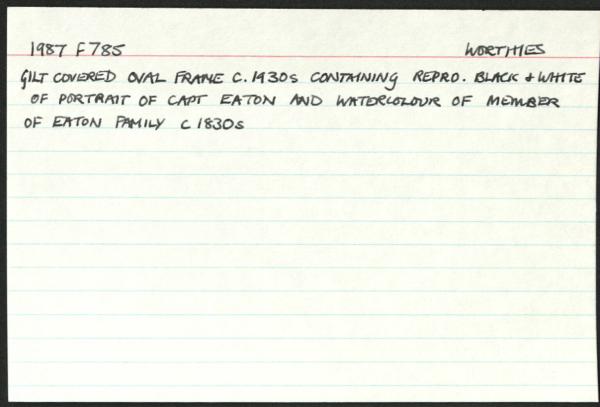 1987 F785 WORTHIES
GILT COVERED OVAL FRAME C.1930s CONTAINING REPRO. BLACK & WHITE
OF PORTRAIT OF CAPT EATON AND WATERCOLOUR OF MEMBER
OF EATON FAMILY C 1830s